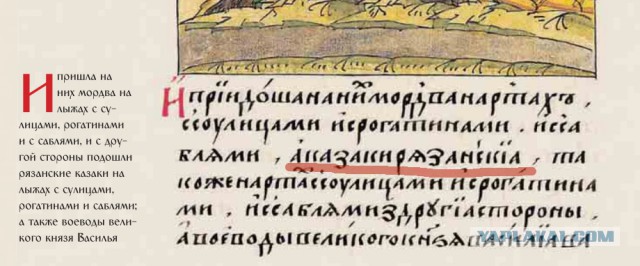 И пришла на
них мордва на
лыжах с су-
лицами, рогатинами
и с саблями, и с дру-
гой стороны подошли
рязанские казаки на
лыжах с сулицами,
рогатинами и саблями;
а также воеводы вели-
кого князя Василья
И прїидоша на ниⷯ мордва на ртахъ,
ссоулицами ирогатинами. исса
блѧми, а казаки рѧзанскїѧ, та
коже на ртаⷯ ссоулицами ирогатина
ми, иссаблѧми здругїа стороны,
а воеводы великого кнѧзѧ василїа ца
YAPLAKAL.COM